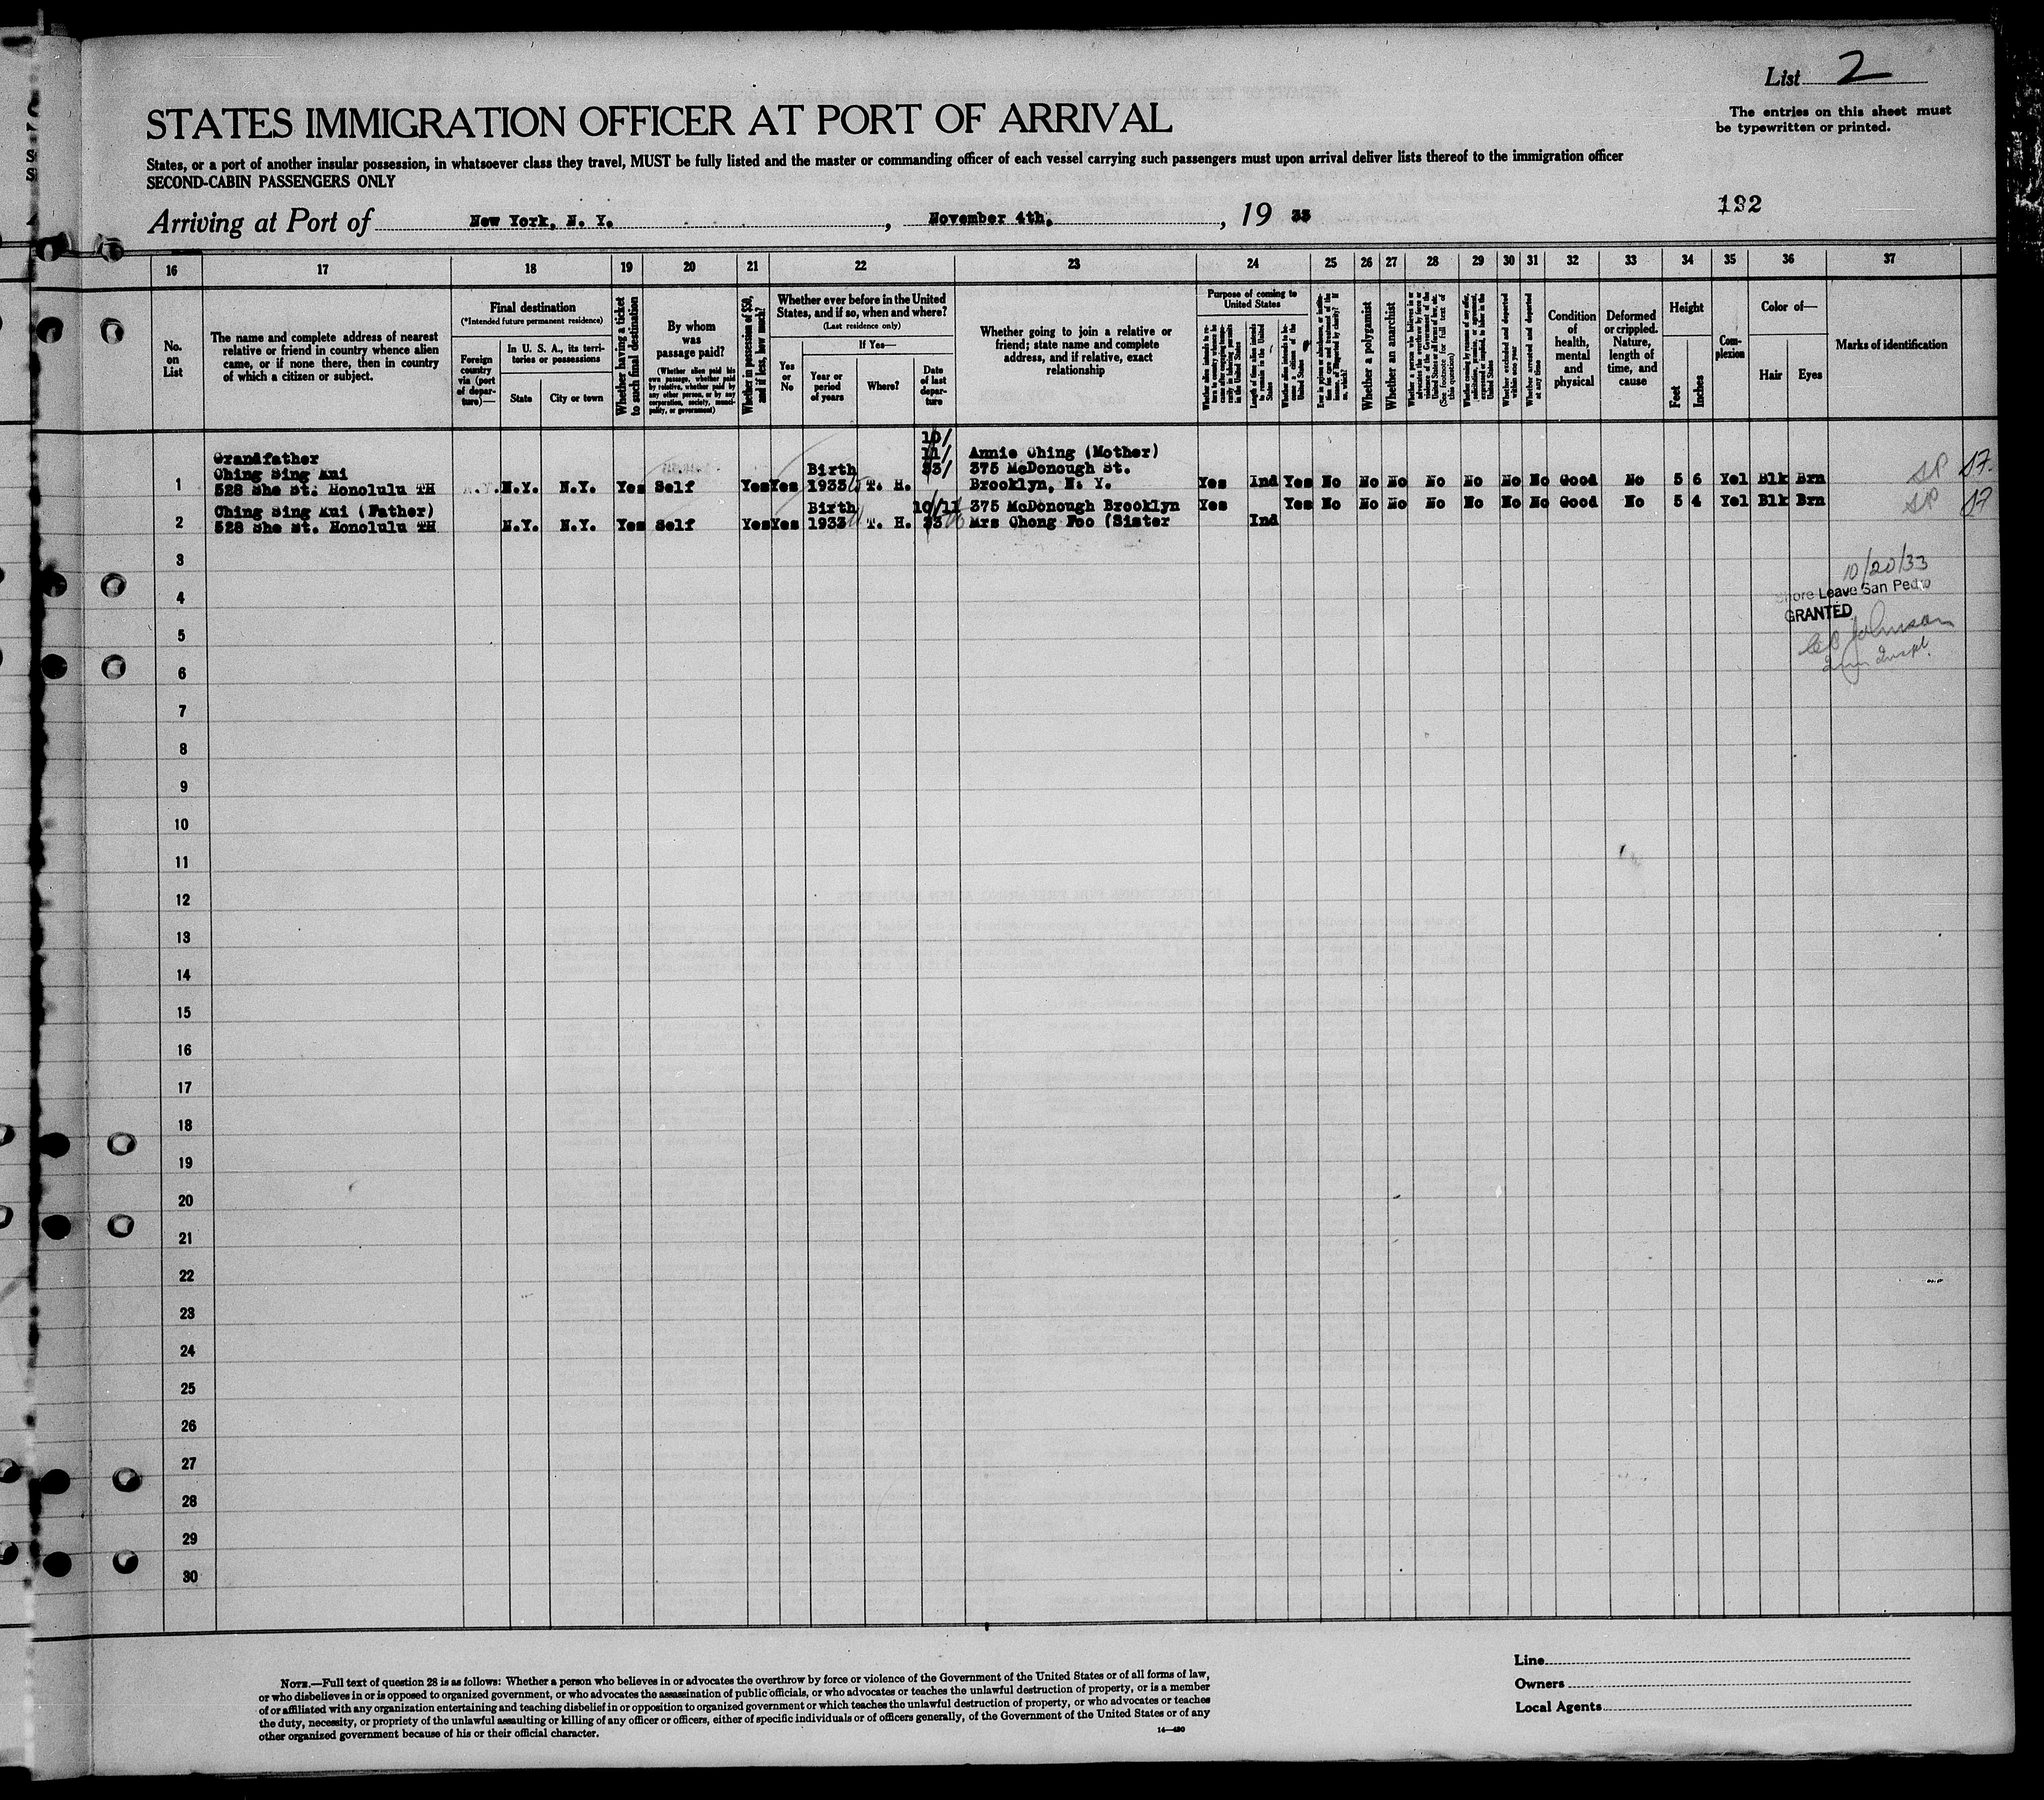 List 2
The entries on this sheet must
be typewritten or printed.
STATES IMMIGRATION OFFICER AT PORT OF ARRIVAL
States, or a port of another insular possession, in whatsoever class they travel, MUST be fully listed and the master or commanding officer of each vessel carrying such passengers must upon arrival deliver lists thereof to the immigration officer
SECOND-CABIN PASSENGERS ONLY
Arriving at Port of New York, N. Y. , November 4th. , 19 33
132
16 17 18 19 20 21 22 23 24 25 26 27 28 29 30 31 32 33 34 35 36 37
No.
on
List
The name and complete address of nearest
relative or friend in country whence alien
came, or if none there, then in country
of which a citizen or subject.
Final destination
(*Intended future permanent residence)
Foreign
country
via (port
of depar-
ture)—
In U. S. A., its terri-
tories or possessions
State
City or town
Whether having a ticket
to such final destination
By whom
was
passage paid?
(Whether alien paid his
own passage, whether paid
by relative, whether paid by
any other person, or by any
corporation, society, munici-
pality, or government)
Whether in possession of $50,
and if less, how much?
Whether ever before in the United
States, and if so, when and where?
(Last residence only)
Yes
or
No
If Yes—
Year or
period
of years
Where?
Date
of last
depar-
ture
Whether going to join a relative or
friend; state name and complete
address, and if relative, exact
relationship
Purpose of coming to
United States
Whether alien intends to re-
turn to country whence he
came after engaging tempo-
rarily in laboring pursuits
in the United States
Length of time alien intends
to remain in the United
States
Whether alien intends to be-
come citizen of the
United States
Whether a polygamist
Whether an anarchist
Whether a person who believes in or
advocates the overthrow by force or
violence of the Government of the
United States or all forms of law, etc.
(See footnote for full text of
this question)
Whether coming by reason of any offer,
solicitation, promise, or agreement,
expressed or implied, to labor in the
United States
Whether excluded and deported
within one year
Whether arrested and deported
at any time
Condition
of
health,
mental
and
physical
Deformed
or crippled.
Nature,
length of
time, and
cause
Height
Feet
Inches
Com-
plexion
Color of—
Hair
Eyes
Marks of identification
Grandfather 10/ Annie Ching (Mother)
Ching Sing Kui Birth 11/ 33/ 375 McDonough St.
1 528 She St. Honolulu TH N.Y. N.Y. Yes Self Yes Yes 1933 T. H. Brooklyn, N. Y. Yes Ind Yes No No No No No No No Good No 5 6 Yel Blk Brn SP
Ching Sing Kui (Father) Birth 10/11 375 McDonough Brooklyn Yes Yes No No No No No No No Good No 5 4 Yel Blk Brn SP
2 528 She St. Honolulu TH N.Y. N.Y. Yes Self Yes Yes 1933 T. H. 33 Mrs Chong Foo (Sister Ind
3
10/20/33
4
Shore Leave San Pedro
GRANTED
5
Johnson
6
7
8
9
10
11
12
13
14
15
16
17
18
19
20
21
22
23
24
25
26
27
28
29
30
NOTE.—Full text of question 28 is as follows: Whether a person who believes in or advocates the overthrow by force or violence of the Government of the United States or of all forms of law,
or who disbelieves in or is opposed to organized government, or who advocates the assassination of public officials, or who advocates or teaches the unlawful destruction of property, or is a member
of or affiliated with any organization entertaining and teaching disbelief in or opposition to organized government or which teaches the unlawful destruction of property, or who advocates or teaches
the duty, necessity, or propriety of the unlawful assaulting or killing of any officer or officers, either of specific individuals or of officers generally, of the Government of the United States or of any
other organized government because of his or their official character.
14—490
Line
Owners
Local Agents